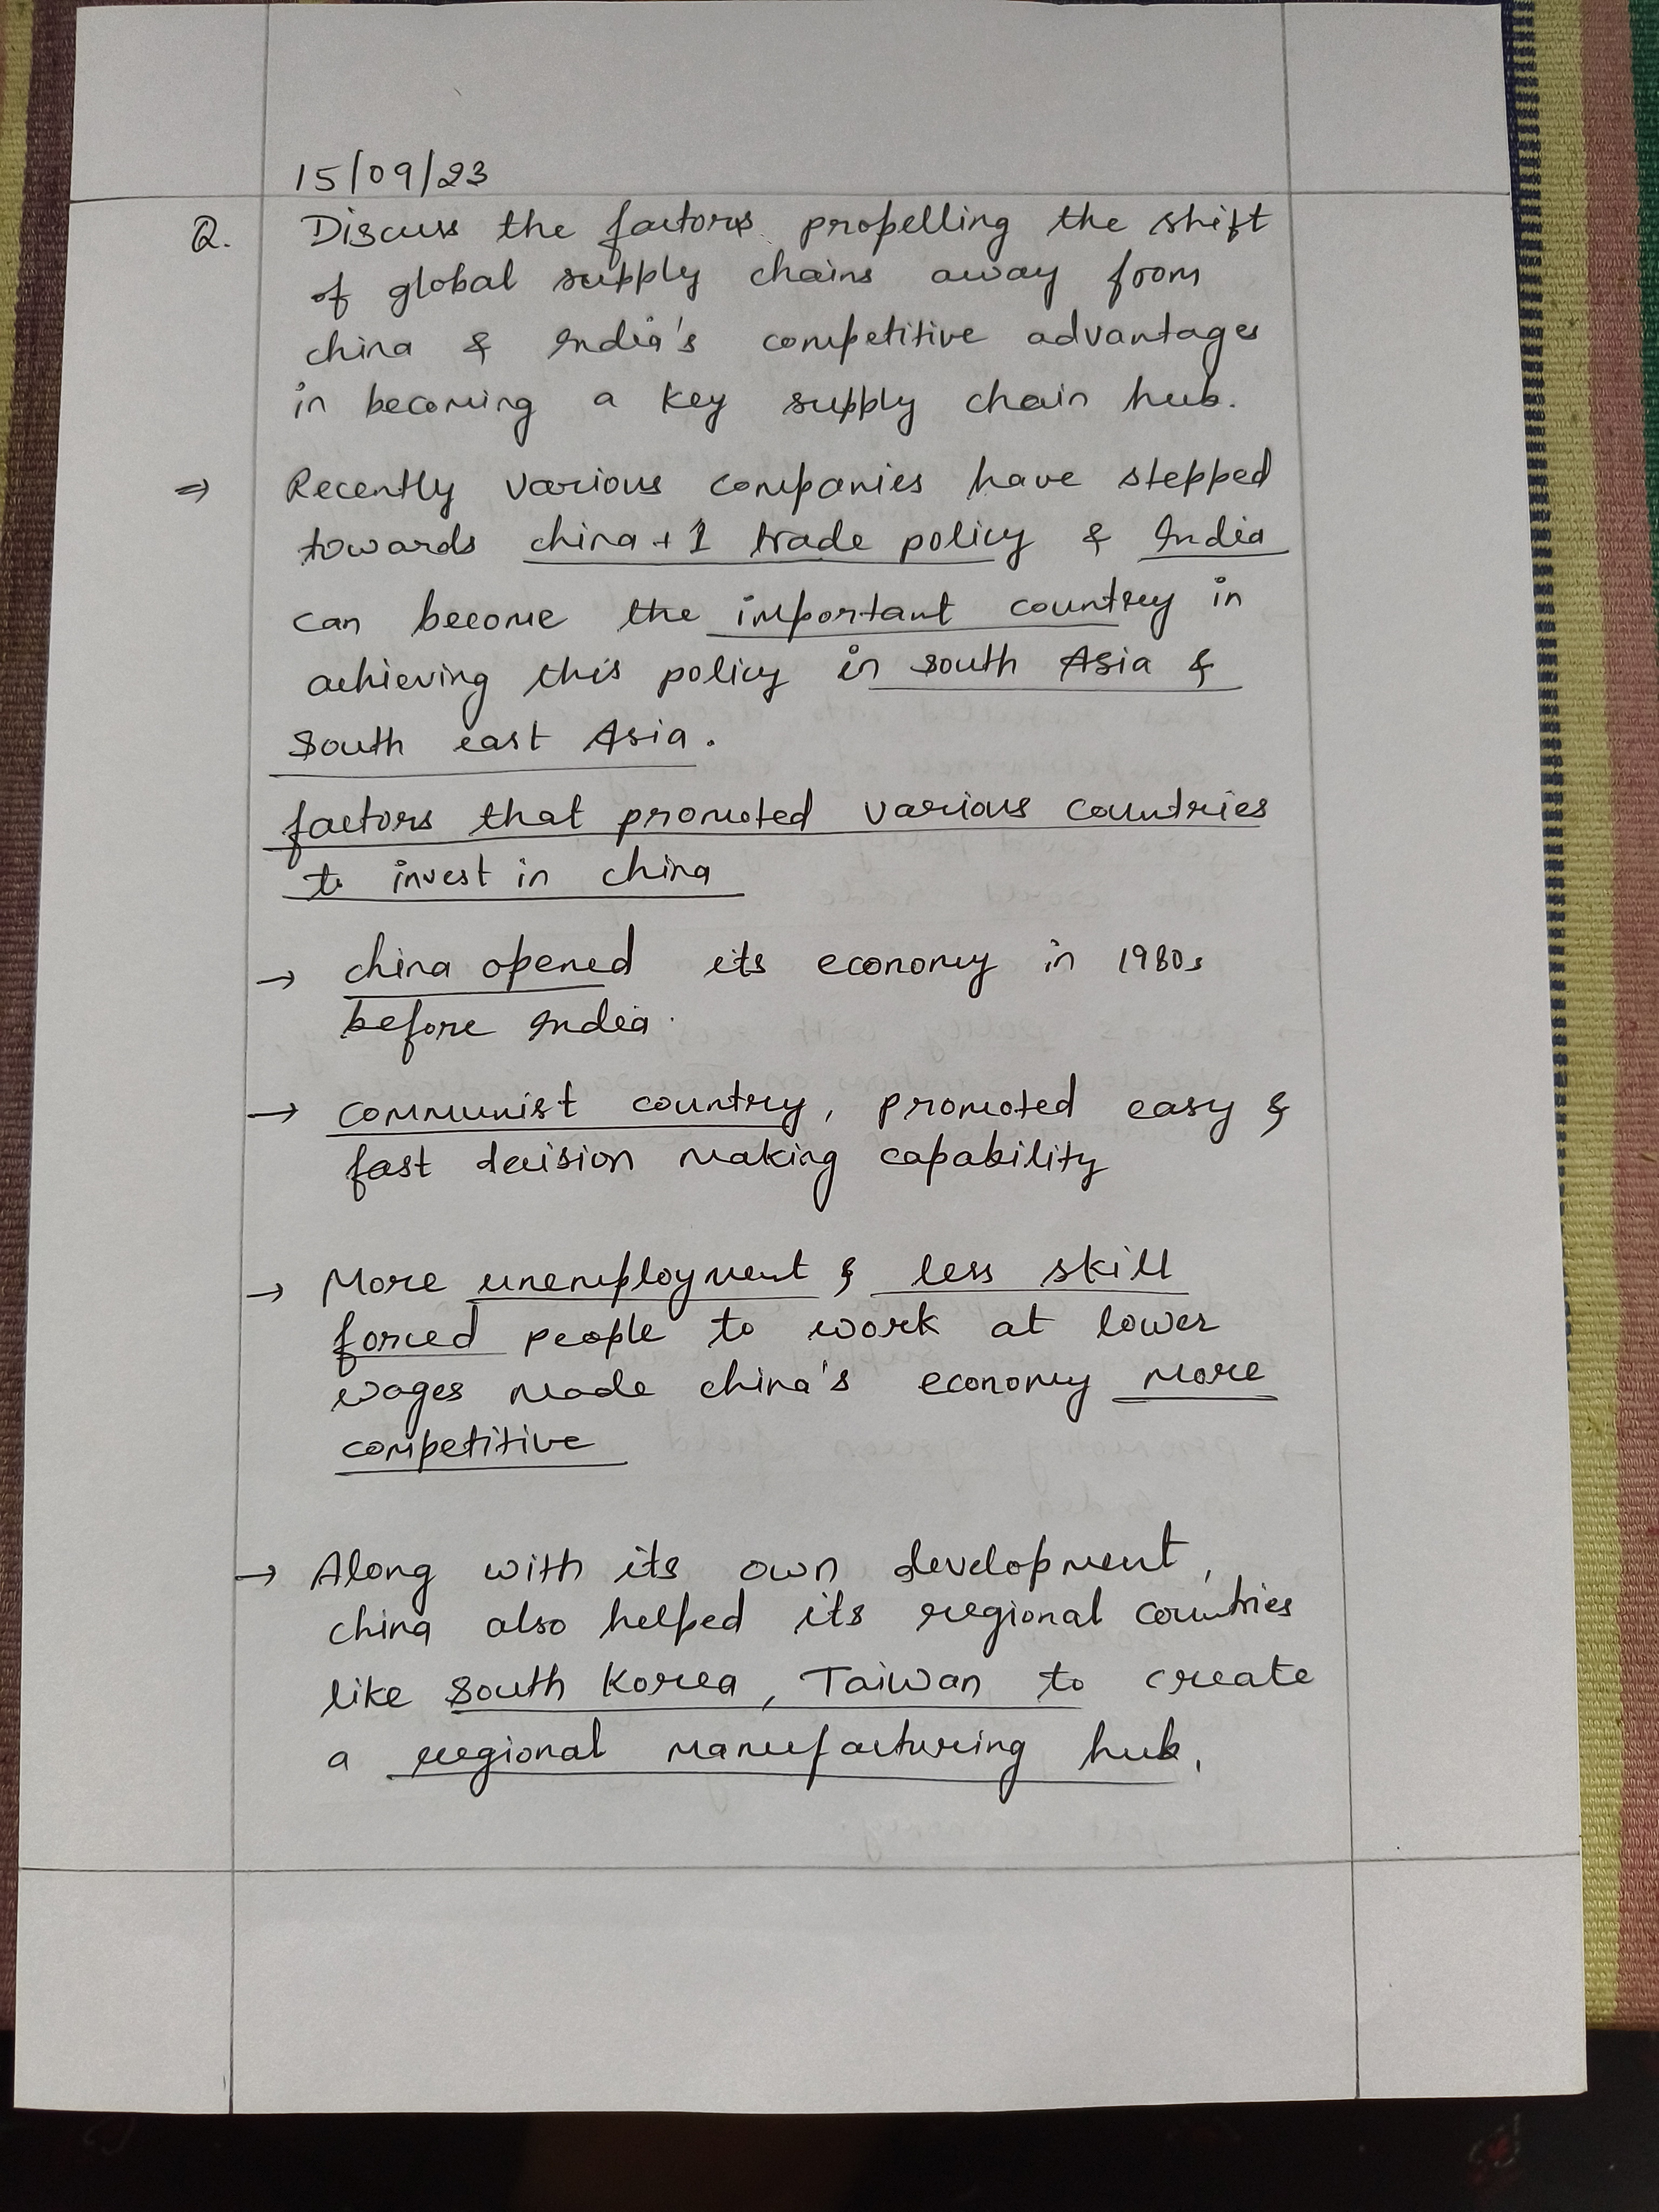 15/09/23
Q. Discuss the factors propelling the shift
of global supply chains away from
china & India's competitive advantages
in becoming a key supply chain hub.
⇒ Recently various companies have stepped
towards china+1 trade policy & India
can become the important country in
achieving this policy in south Asia &
South east Asia.
factors that promoted various countries
to invest in china
→ china opened its economy in 1980s
before India.
→ communist country, promoted easy &
fast decision making capability
→ More unemployment & less skill
forced people to work at lower
wages made china's economy more
competitive
→ Along with its own development,
china also helped its regional countries
like South Korea, Taiwan to create
a regional manufacturing hub.